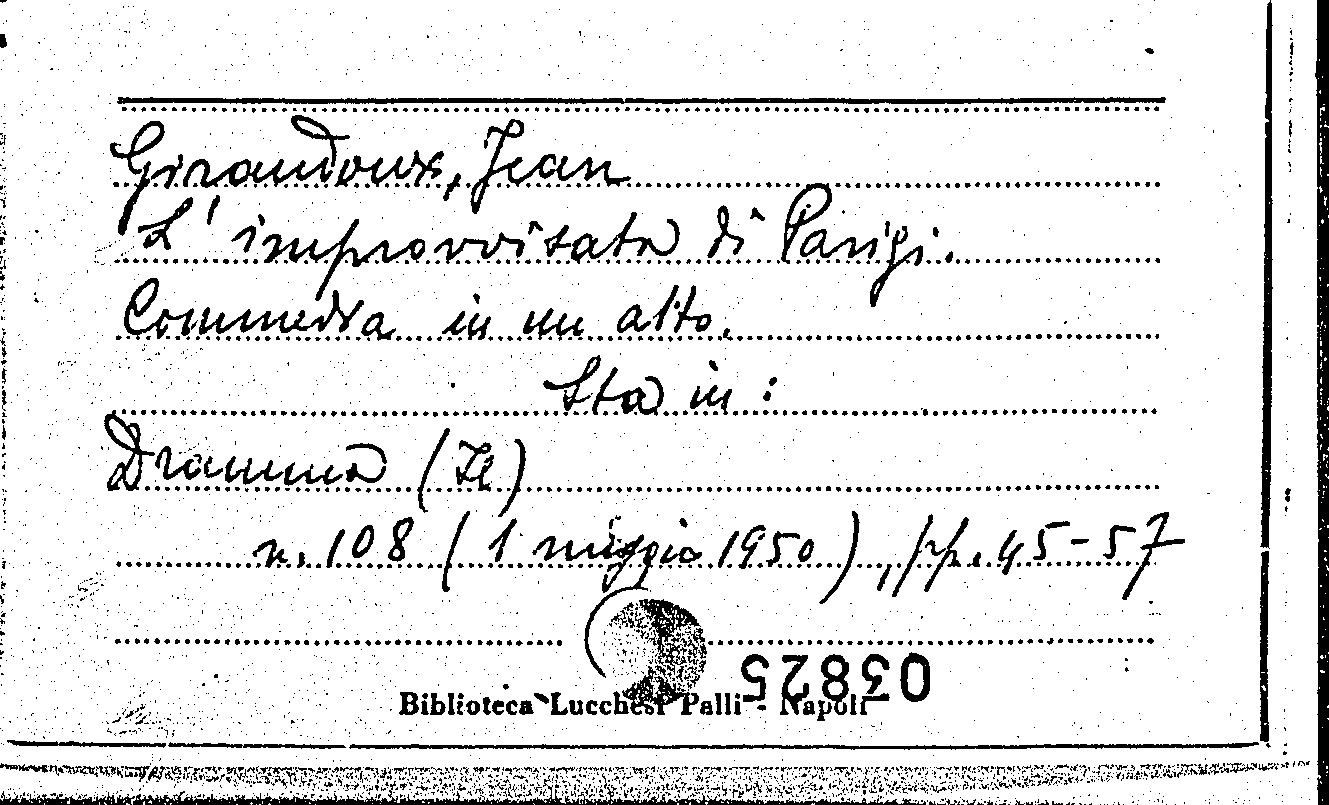 Giraudoux, Jean
L'improvvisata di Parigi.
Commedia in un atto.
Sta in:
Dramma (Il)
n. 108 (1 maggio 1950), pp. 45-57
03825
Biblioteca Lucchesi Palli - Napoli